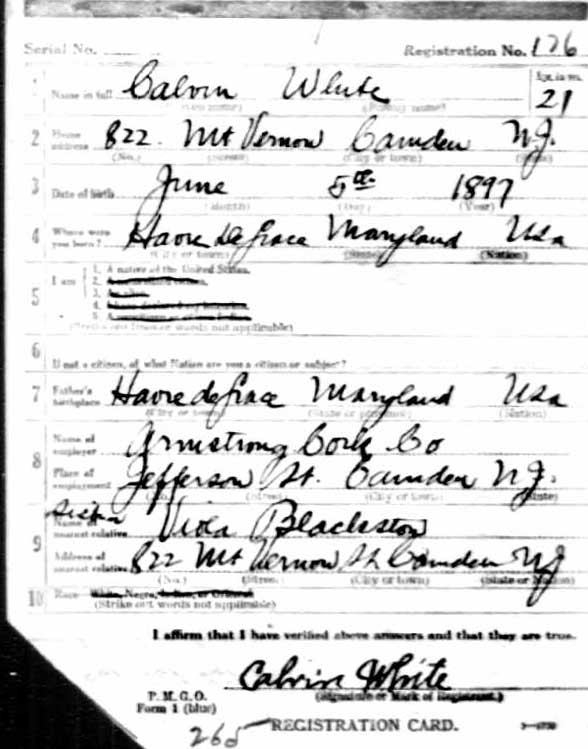 Serial No. Registration No. 126
1 Name in full Calvin White Age in yrs. 21
(Given name) (Family name)
2 Home address 822. Mt Vernon Camden N.J.
(No.) (Street) (City or town) (State)
3 Date of birth June 5th 1897
(Month) (Day) (Year)
4 Where were you born? Havre de Grace Maryland Usa
(City or town) (State) (Nation)
5 I am
1. A native of the United States.
2. A naturalized citizen.
3. An alien.
4. I have declared my intention.
5. A noncitizen or citizen Indian.
(Strike out lines or words not applicable)
6 If not a citizen, of what Nation are you a citizen or subject?
7 Father's birthplace Havre de Grace Maryland Usa
(City or town) (State or province) (Nation)
8 Name of employer Armstrong Cork Co
Place of employment Jefferson St. Camden N.J.
(No.) (Street) (City or town) (State)
Sister
9 Name of nearest relative Viola Blackston
Address of nearest relative 822 Mt Vernon St Camden NJ
(No.) (Street) (City or town) (State or Nation)
10 Race—White, Negro, Indian, or Oriental
(Strike out words not applicable)
I affirm that I have verified above answers and that they are true.
Calvin White
(Signature or Mark of Registrant.)
P. M. G. O.
Form 1 (blue)
265 REGISTRATION CARD.